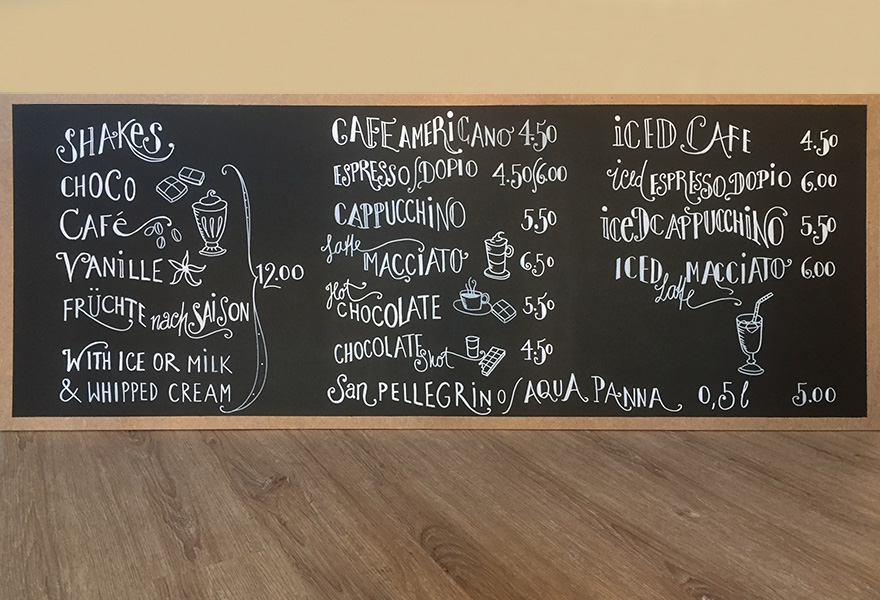 SHAKES
CHOCO
CAFé
VANILLE
FRÜCHTE nach SAISON
12.00
WITH ICE OR MILK
& WHIPPED CREAM
CAFE AMERICANO 4.50
ESPRESSO/DOPIO 4.50/6.00
CAPPUCCHINO 5.50
Latte MACCIATO 6.50
Hot CHOCOLATE 5.50
CHOCOLATE Shot 4.50
San PELLEGRINO/AQUA PANNA 0,5l 5.00
iCED CAFE 4.50
iced ESPRESSO,DOPIO 6.00
iceD CAPPUCCHINO 5.50
ICED Latte MACCIATO 6.00